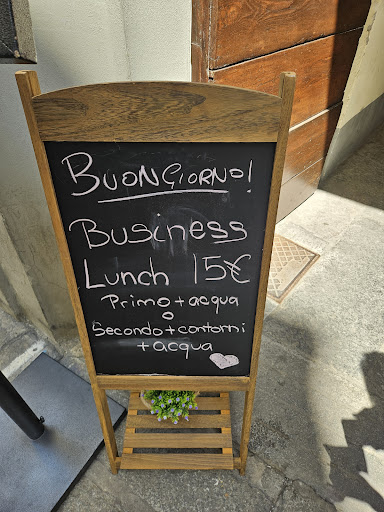 BUONGIORNO!
Business
Lunch 15€
Primo + acqua
o
Secondo + contorni
+ acqua